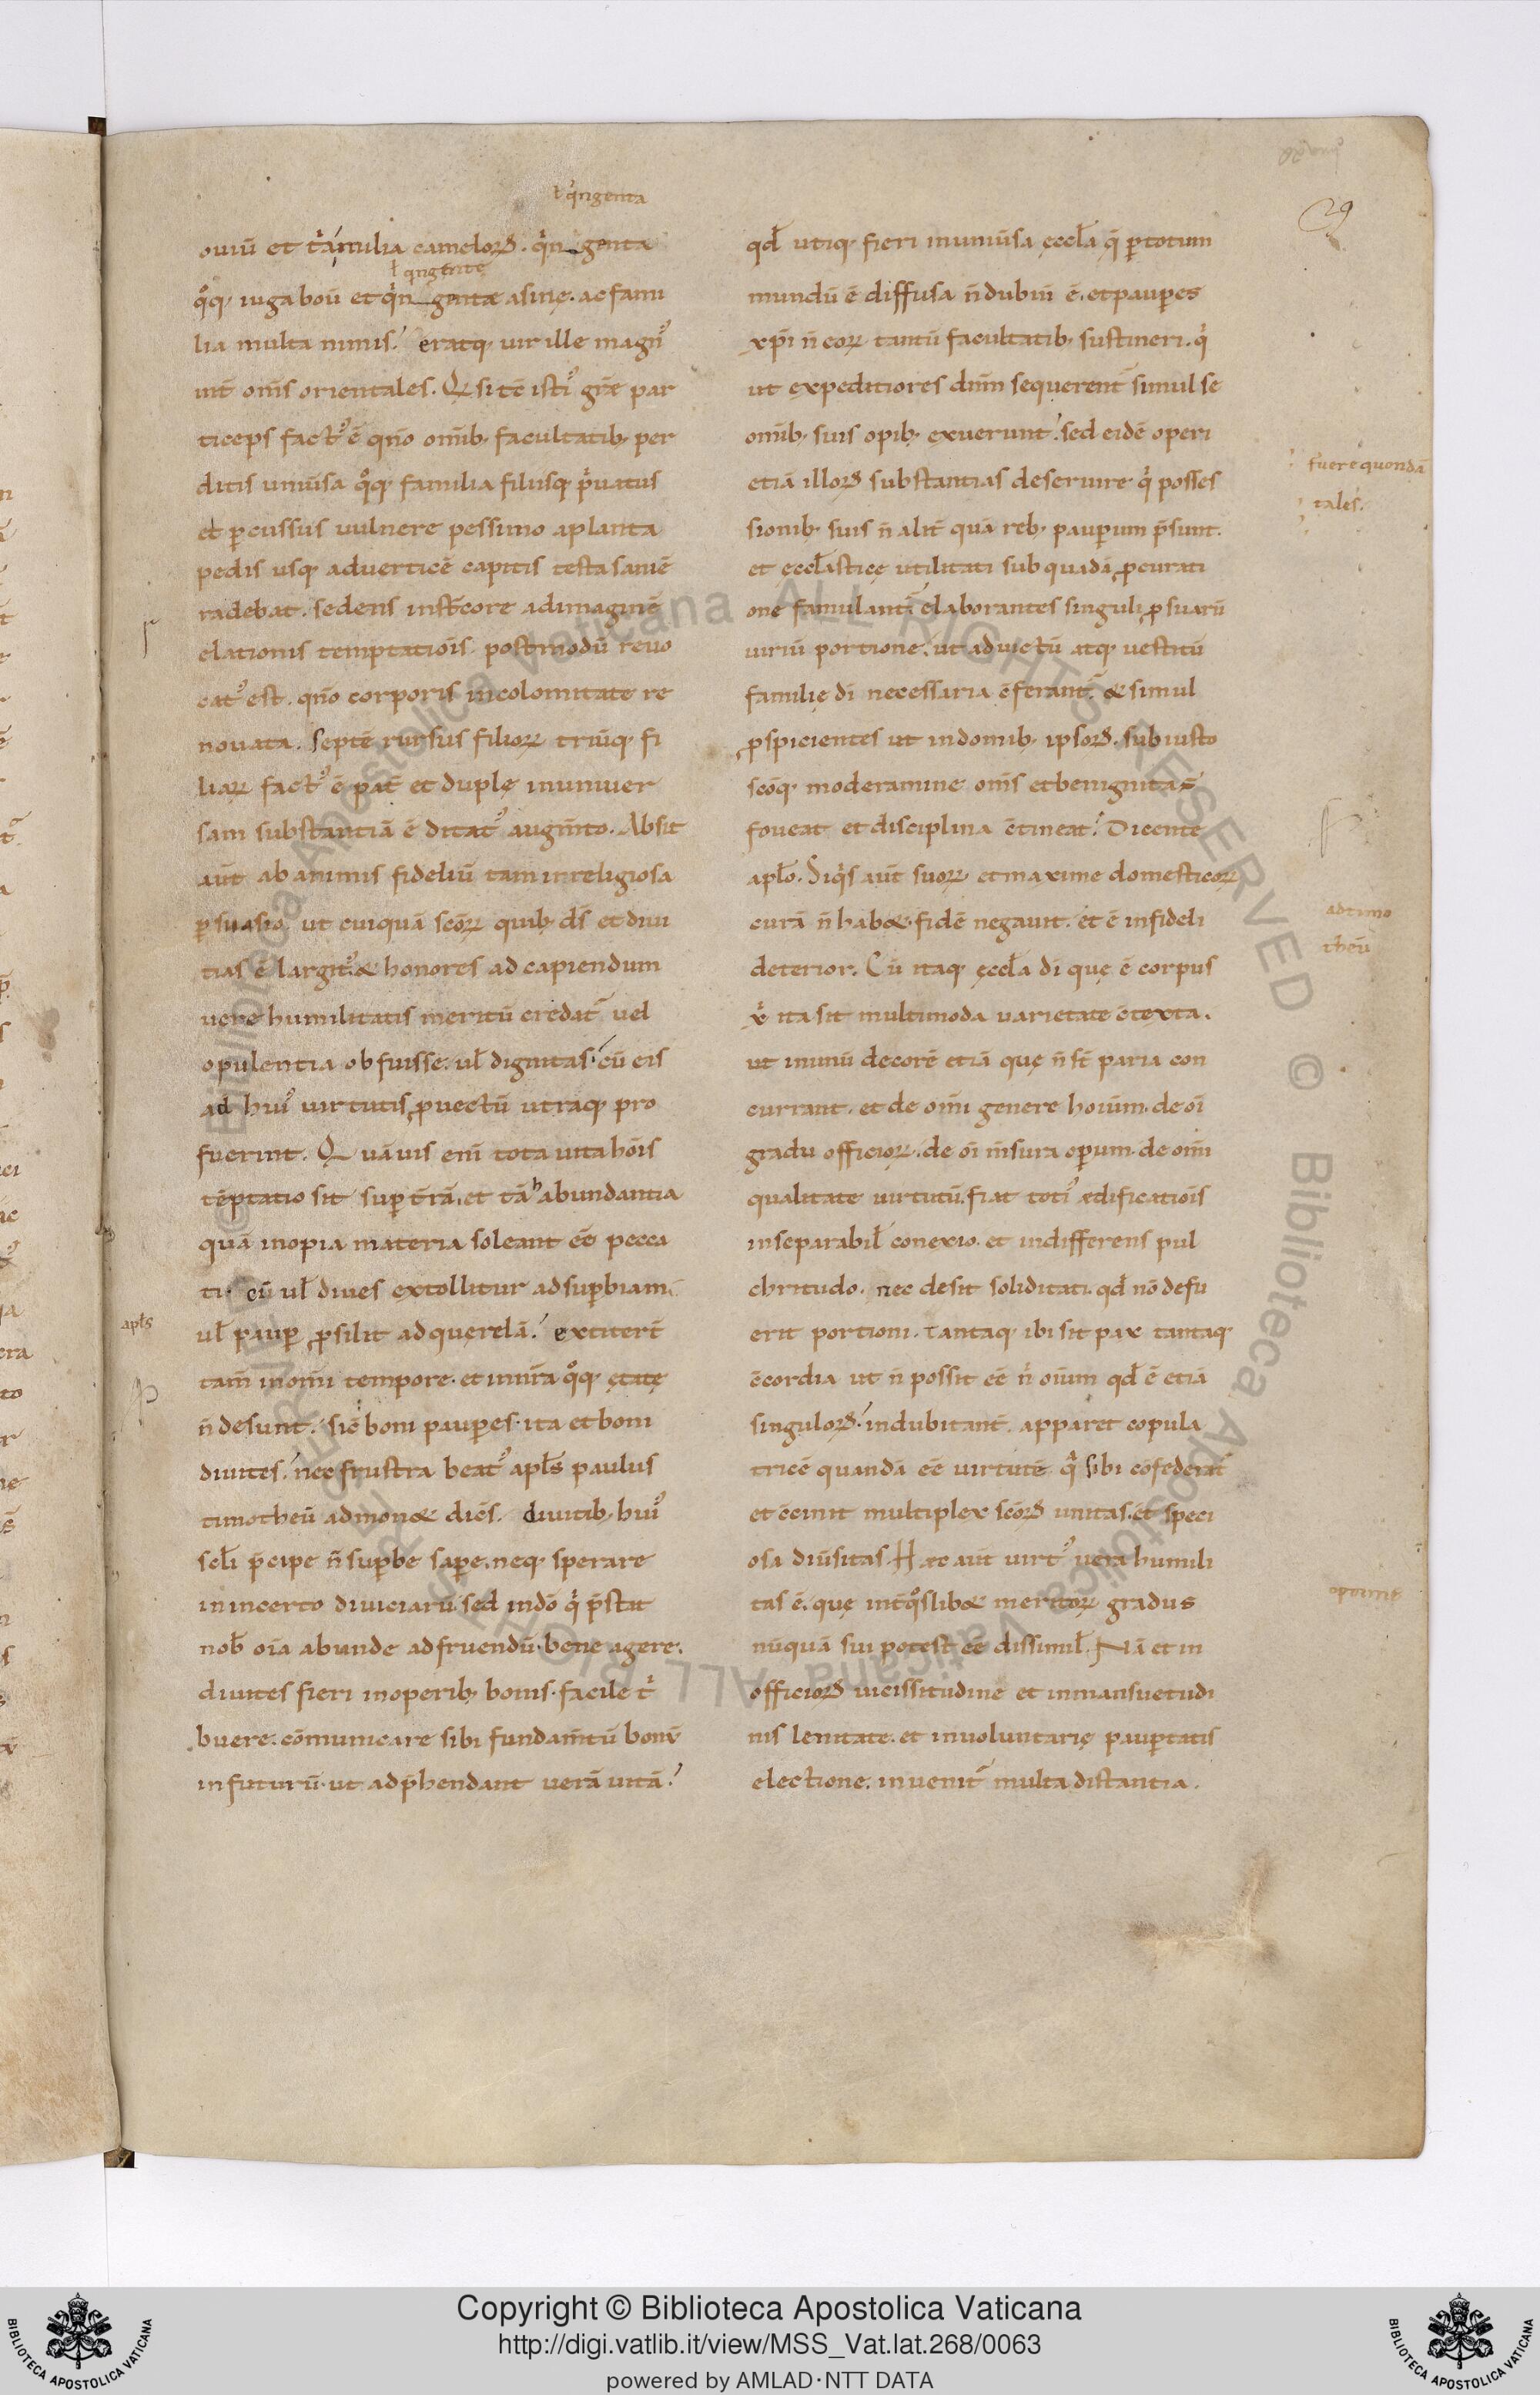 ł q̓ngenta
ouiū et t̓a milia camelorꝝ. q̓ngenta
ł qngente
qͦq; iuga boū et q̓ngentę asinę. ac fami
lia multa nimis. eratq; uir ille magn᷒
int̄ oms̄ orientales. Q si tē isti᷒ grę par
ticeps fact᷒ ē qn̄o omib; facultatib; per
ditis uniūsa qͦq; familia filiisq; p̓uatus
et ꝑcussus uulnere pessimo aplanta
pedis usq; aduerticē capitis testa saniē
radebat. sedens inst̄core adimaginē
elationis temptatiōis. postmodū reuo
cat᷒ est. qn̄o corporis incolomitate re
nouata. septē rursus filiorꝝ triūq; fi
liarꝝ fact᷒ ē pat̄ et duplę inuniuer
sam substantiā ē ditat᷒ augm̄to. Absit
aūt ab animis fideliū tam inreligiosa
ꝑsuasio. ut cuiquā scōrꝝ quib; dš et diui
tias ē largit᷒. & honores ad capiendum
uere humilitatis meritū credat᷑ uel
opulentia obfuisse. ul̄ dignitas. cū eis
ad hui᷒ uirtutis ꝓuectū utraq; pro
fuerint. Quāuis enī tota uita hōis
tēptatio sit suꝑ tr̄ā. et tā habundantia
quā inopia materia soleant eē pecca
ti. cū ul̄ diues extollitur adsuꝑbiam.
apl̄s
ul̄ pauꝑ ꝓsilit ad querelā. extiter̄
tam̄ inom̄i tempore. et inn̄ra qͦq; ętatę
n̄ desunt. sic̄ boni pauꝑes. ita et boni
diuites. nec frustra beat᷒ apl̄s paulus
timotheū admon& diēs. diuitib; hui᷒
scl̄i p̄cipe n̄ suꝑbe saꝑe. neq; sperare
inincerto diuiciarū. sed indō q̓ p̄stat
nob̄ oīa abunde adfruendū. bene agere.
diuites fieri inoperib; bonis. facile t̓
buere. cōmunicare sibi fundam̄tū bonū
infuturū. ut adp̄hendant uerā uitā.
29
qd̄ utiq; fieri inuniūsa ęccl̄a q̄ ꝑtotum
mundū ē diffusa n̄ dubiū ē. et pauꝑes
xp̄i n̄ eorꝝ tantū facultatib; sustineri. q̓
ut expeditiores dnm̄ sequerent᷑ simul se
omīb; suis opib; exuerunt. sed eidē operi
etiā illorꝝ substantias deseruire q̓ posses
fuere quondā
tales.
sionib; suis n̄ alit̄ quā reb; pauꝑum p̄sunt.
et ęccl̄asticę utilitati sub quadā ꝓcurati
one famulant᷑ elaborantes singuli ꝓ suarū
uiriū portione. ut aduictū atq; uestitū
familię dī necessaria c̄ferant᷑. & simul
ꝓspicientes ut indomib; ipsorꝝ. sub iusto
scōq; moderamine oms̄ et benignitas
foueat et disciplina c̄tineat. Dicente
apl̄o. Siq̓s aūt suorꝝ et maxime domesticorꝝ
adtimo
theū
curā n̄ hab&. fidē negauit. et ē infideli
deterior. Cū itaq; ęccl̄a dī quę ē corpus
x̓ ita sit multimoda uarietate c̄texta.
ut inunū decorē etiā quę n̄ st̄ paria con
currant. et de om̄i genere hoīum. de oī
gradu officiorꝝ. de oī m̄sura oꝑum. de om̄i
qualitate uirtutū. fiat toti᷒ ædificatiōis
inseparabil̄ conexio. et indifferens pul
chritudo. nec desit soliditati. qd̄ nō defu
erit portioni. tantaq; ibi sit pax tantaq;
c̄cordia ut n̄ possit eē n̓ oīum qd̄ ē etiā
singulorꝝ. indubitant̄. apparet copula
tricē quandā eē uirtutē q̓ sibi cōfederat᷑
et c̄cinit multiplex scōrꝝ unitas. et speci
osa diūsitas. Hæc aūt uirt᷒ uera humili
tas ē. quę int̄ qͦslib& meritorꝝ gradus
nūquā sui potest eē dissimil̄. Nā et in
officiorꝝ uicissitudine et inmansuetudi
nis lenitate. et inuoluntarię pauꝑtatis
electione. inuenit᷑ multa distantia.
Copyright © Biblioteca Apostolica Vaticana
http://digi.vatlib.it/view/MSS_Vat.lat.268/0063
powered by AMLAD·NTT DATA
BIBLIOTECA APOSTOLICA VATICANA
BIBLIOTECA APOSTOLICA VATICANA